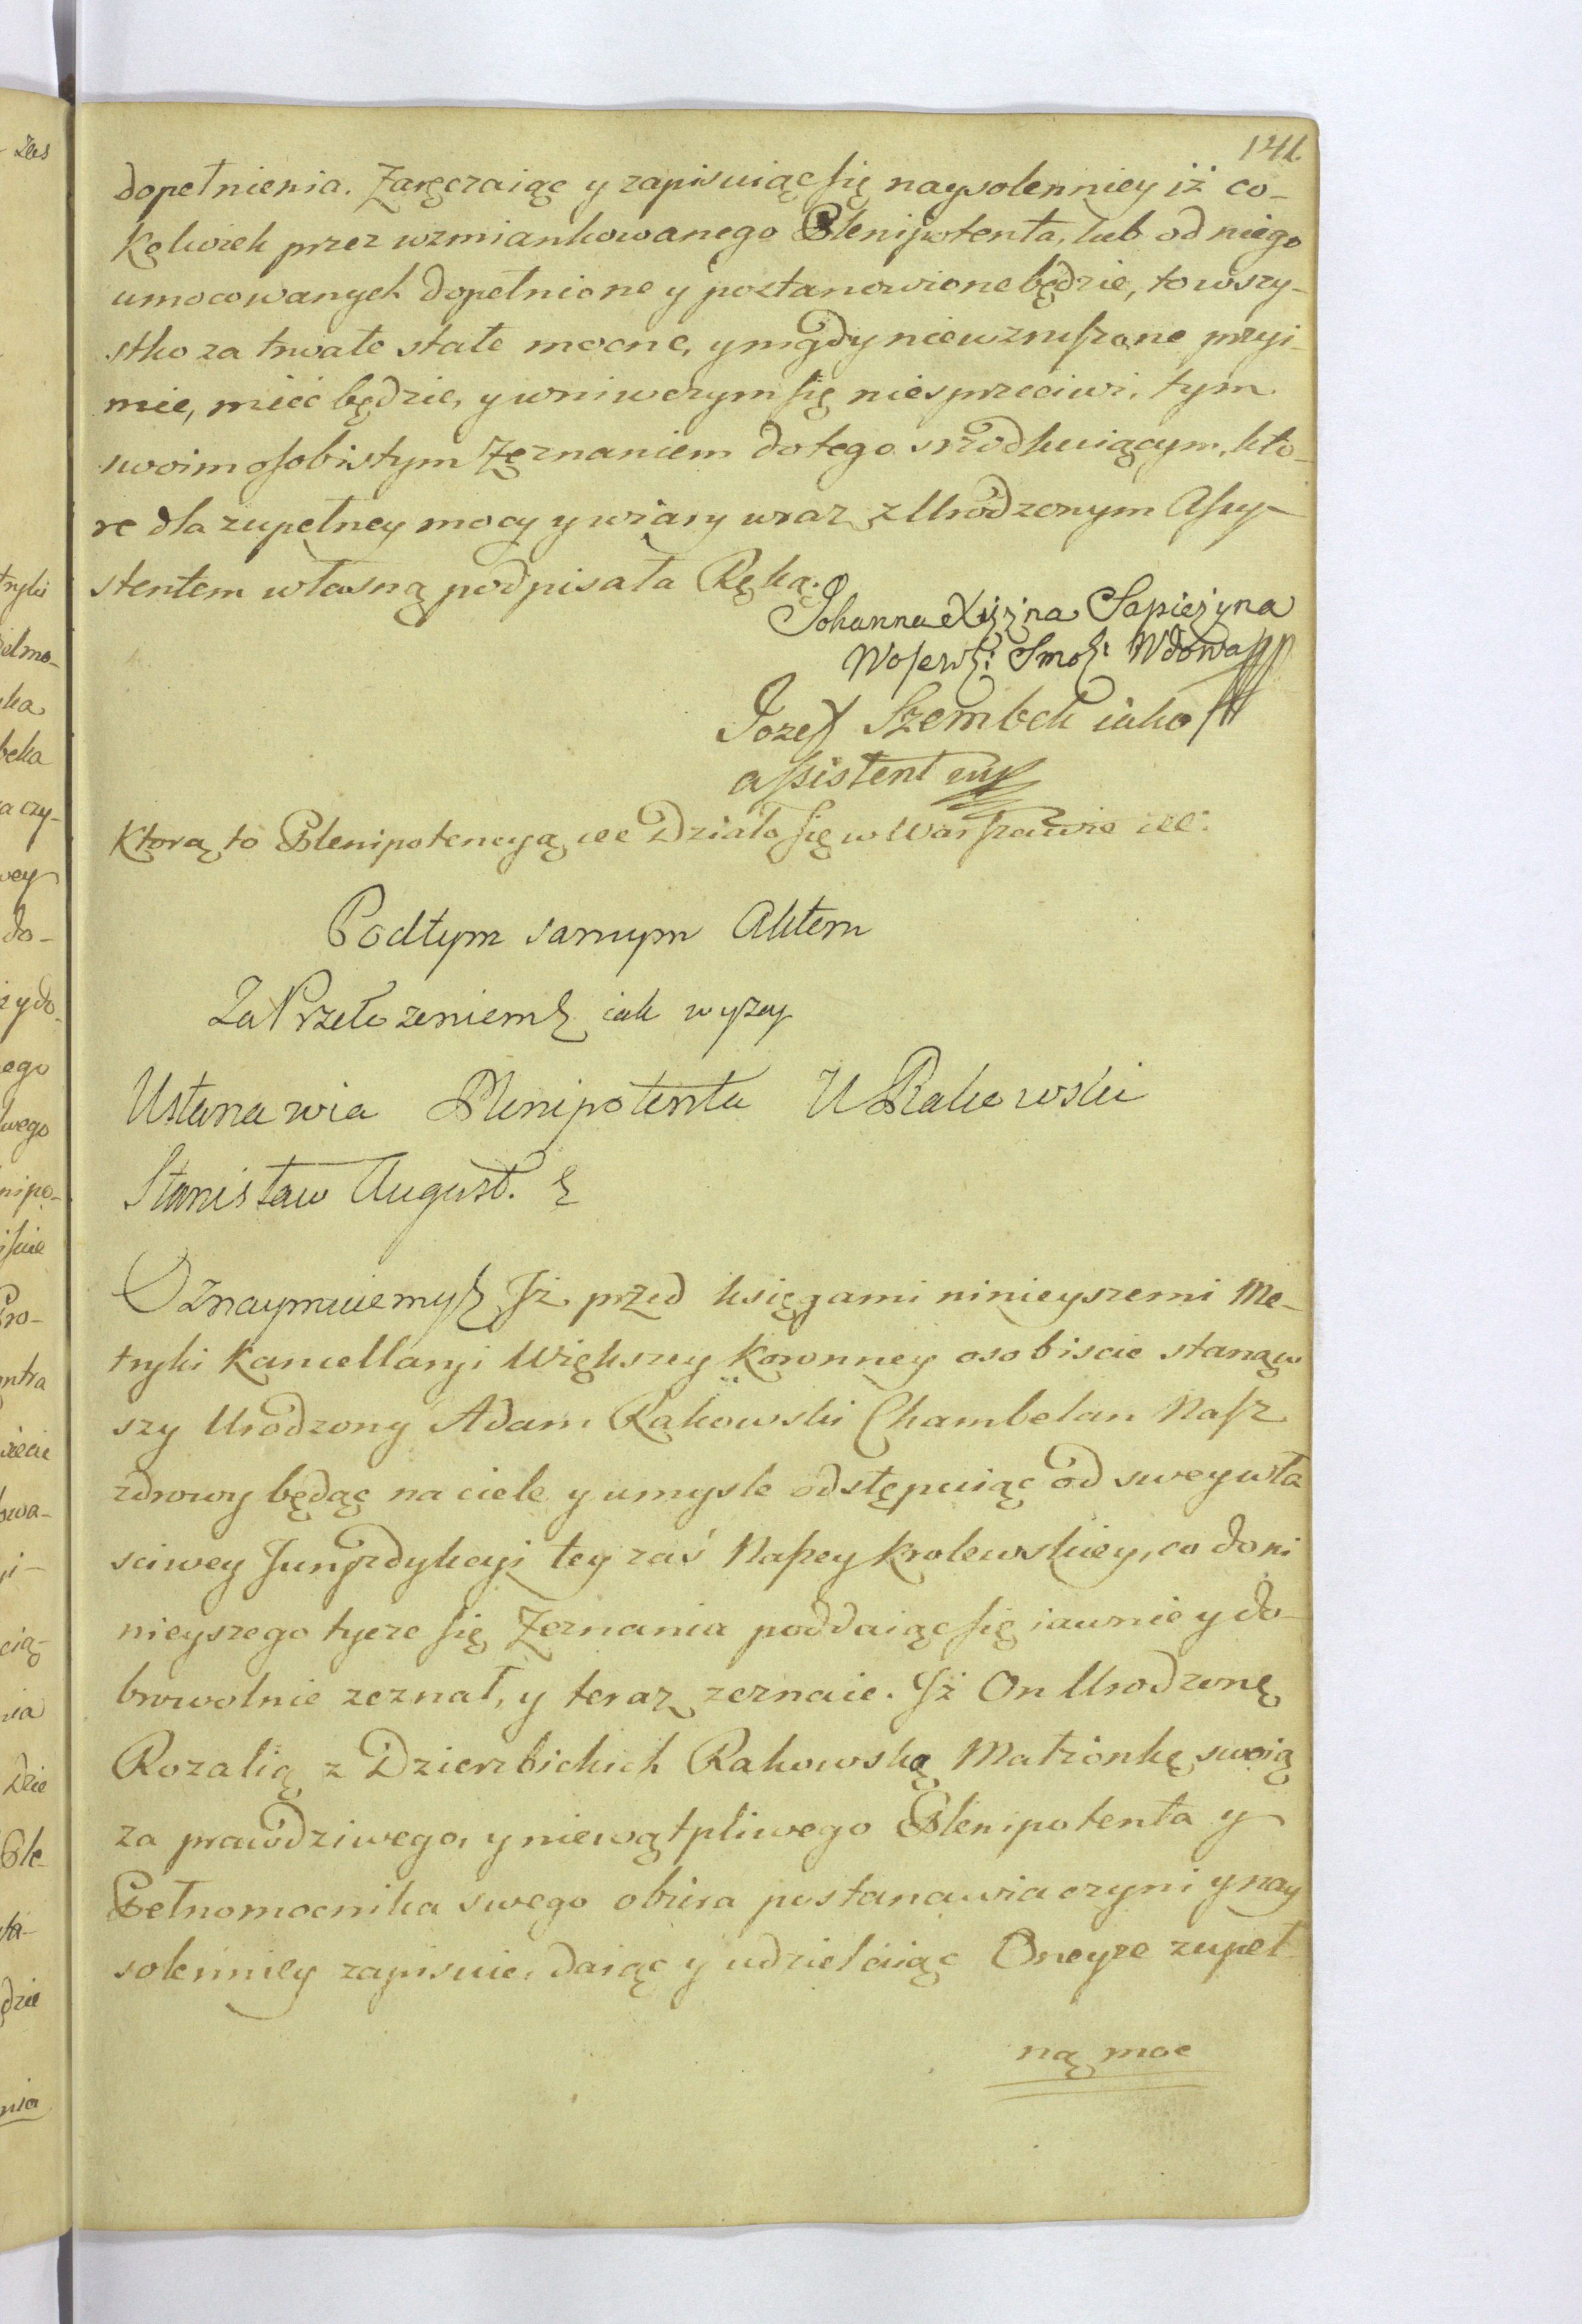 141.
dopełnienia. Zaręczaiąc y zapisuiąc się naysolenniey iż co-
kolwiek przez wzmiankowanego Plenipotenta, lub od niego
umocowanych dopełnione y postanowione będzie, to wszy-
stko za trwałe stałe mocne, y nigdy niewzruszone przyi-
mie, mieć będzie, y wniwczym się niesprzeciwi. tym
swoim osobistym Zeznaniem do tego srzodkuiącym, kto-
re dla zupełney mocy y wiary wraz z Urodzonym Assy-
stentem własną podpisała Ręką.
Johanna Xiężna Sapieżyna
Wojew: Smol: Wdowa
Jozef Szembek iako
assistent mp
Ktorą to Plenipotencyą etc Działo się w Warszawie etc:
Podtym samym Aktem
Za Przełożeniem etc iak wyzey
Ustanawia Plenipotenta U Rakowski
Stanisław August. etc
Oznaymuiemy etc Jż przed księgami ninieyszemi Me-
tryki Kancellaryi Większey Koronney osobiscie stanąw
szy Urodzony Adam Rakowski Chambelan Nasz
zdrowy będąc na ciele y umysle odstępuiąc od swey wła
sciwey Juryzdykcyi tey zaś Naszey Krolewskiey, co do ni
nieyszego tycze się Zeznania poddaiąc się iawnie y do-
browolnie zeznał, y teraz zeznaie. Jż On Urodzoną
Rozalią z Dzierzbickich Rakowską Małżonkę swoią
za prawdziwego, y niewątpliwego Plenipotenta y
Pełnomocnika swego obiera postanawia czyni y nay
solenniey zapisuie, daiąc y udzielaiąc Oneyże zupeł
ną moc